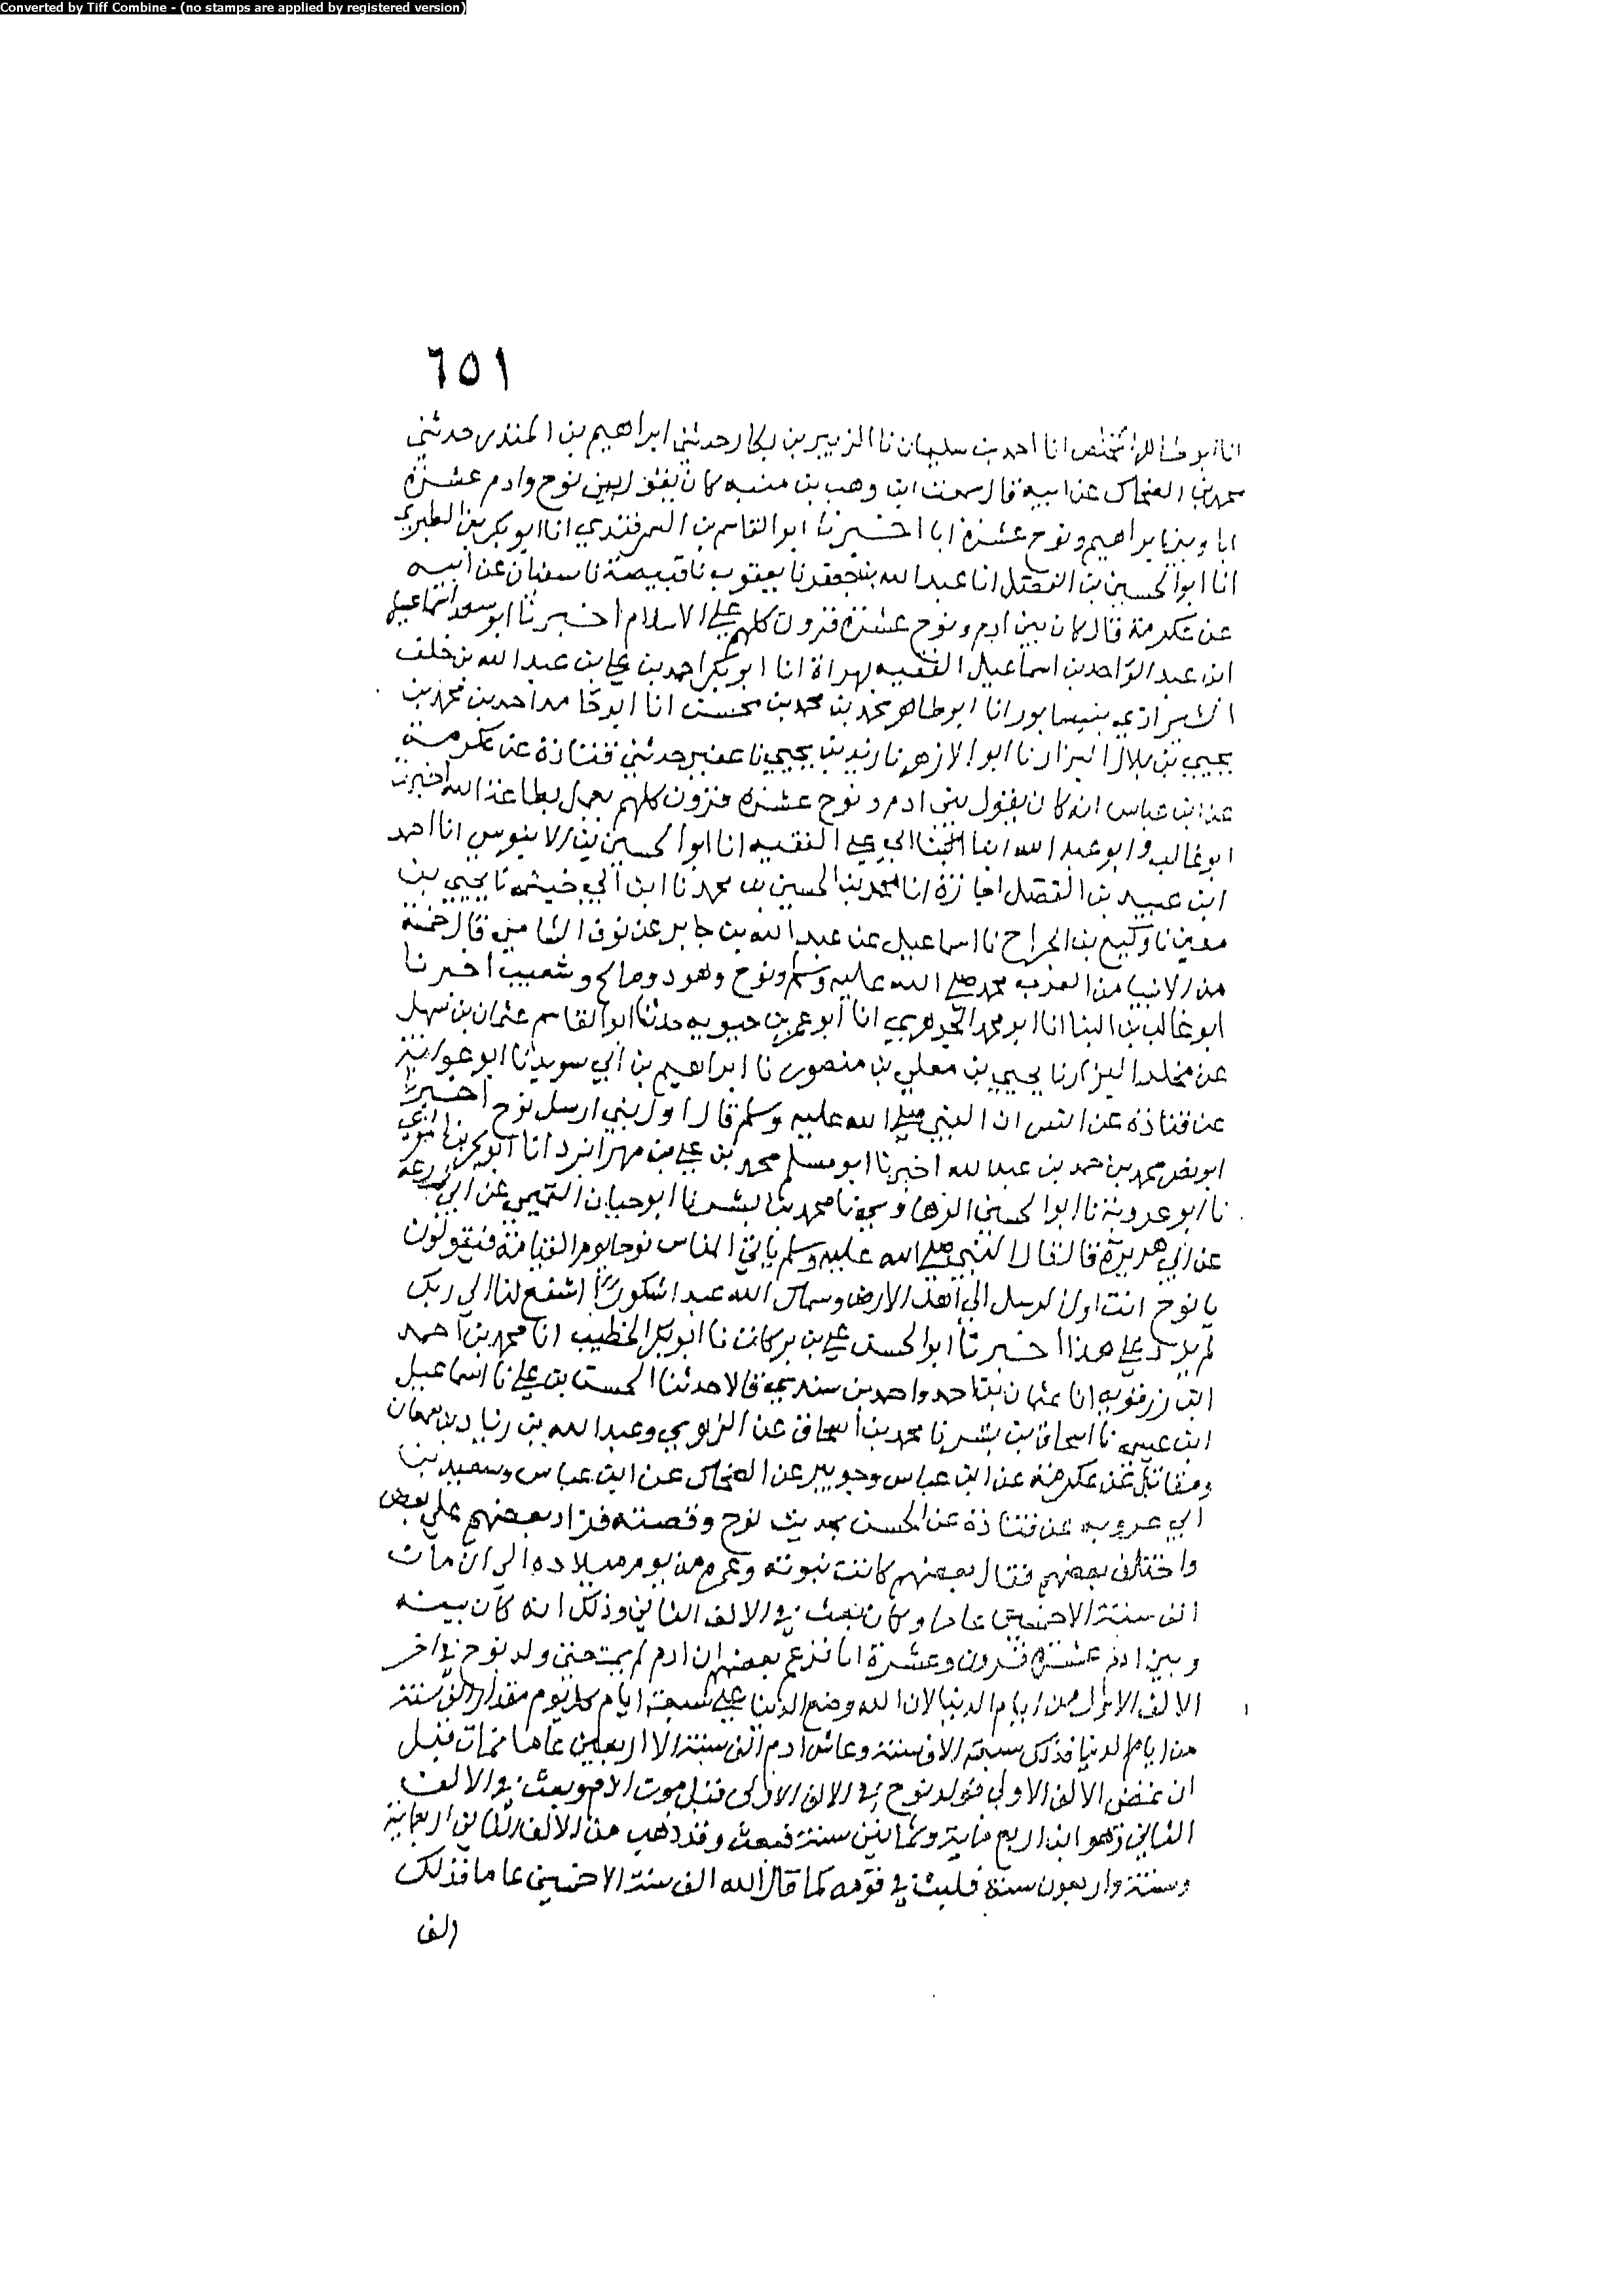 Converted by Tiff Combine - (no stamps are applied by registered version)
٦٥١
انا ابو طاهر المخلص انا احمد بن سليمان نا الزبير بن بكار حدثني ابراهيم بن المنذر حدثني
محمد بن الضحاك عن ابيه قال سمعت ابن وهب بن منبه كان يقول بين نوح وادم عشرة
ابا وبين ابراهيم ونوح عشرة ابا اخبرنا ابو القاسم بن السمرقندي انا ابو بكر بن الطبري
انا ابو الحسين بن الفضل انا عبد الله بن جعفر نا يعقوب نا قبيصة نا سفيان عن ابيه
عن عكرمة قال كان بين ادم ونوح عشرة قرون كلهم على الاسلام اخبرنا ابو سعد اسماعيل
ابن عبد الواحد بن اسماعيل الفقيه بهراة انا ابو بكر احمد بن علي بن عبد الله بن خلف
الشيرازي بنيسابور انا ابو طاهر محمد بن محمد بن محسن انا ابو حامد احمد بن محمد بن
يحيى بن بلال البزار نا ابو الازهر نا يحيى نا حدثني قتادة عن عكرمة
عن ابن عباس انه كان يقول بين ادم ونوح عشرة قرون كلهم يعمل بطاعة الله اخبرنا
ابو غالب وابو عبد الله ابنا ابي علي الفقيه انا ابو الحسين بن الابنوسي انا احمد
ابن عبيد بن الفضل اجازة انا محمد بن الحسين نا محمد نا ابن ابي خيثمة نا يحيى بن
معين نا وكيع بن الجراح نا اسماعيل عن عبد الله بن جابر عن نوف الشامي قال خمسة
من الانبيا من العرب محمد صلى الله عليه وسلم ونوح وهود وصالح وشعيب اخبرنا
ابو غالب بن البنا انا ابو محمد الجوهري انا ابو عمر بن حيويه حدثنا ابو القاسم عثمان بن سهل
عن مخلد البزار نا يحيى بن معلى بن منصور نا ابراهيم بن ابي سويد نا ابو عوانة
عن قتادة عن انس ان النبي صلى الله عليه وسلم قال اول نبي ارسل نوح اخبرنا
ابو نصر محمد بن حمد بن عبد الله اخبرنا ابو مسلم محمد بن علي بن مهرابزد انا ابو بكر بن المقري
نا ابو عروبة نا ابو الحسين الرهاوي نا محمد بن بشر نا ابو حيان التيمي عن ابي زرعة
عن ابي هريرة قال قال النبي صلى الله عليه وسلم ياتي الناس نوحا يوم القيامة فيقولون
يا نوح انت اول الرسل الى اهل الارض وسماك الله عبدا شكورا اشفع لنا الى ربك
لم يزد على هذا اخبرنا ابو الحسن علي بن بركات نا ابو بكر الخطيب انا محمد بن احمد
ابن رزقويه انا عثمان بن احمد واحمد بن سندي قالا حدثنا الحسن بن علي نا اسماعيل
ابن عيسى نا اسحاق بن بشر نا محمد بن اسحاق عن الزهري وعبد الله بن زياد بن سمعان
ومقاتل عن عكرمة عن ابن عباس وجويبر عن الضحاك عن ابن عباس وسعيد بن
ابي عروبه عن قتادة عن الحسن بحديث نوح وقصته فزاد بعضهم على بعض
واختلف بعضهم فقال بعضهم كانت نبوته وعمره من يوم ميلاده الى ان مات
الف سنة الا خمسين عاما وكان بعث في الالف الثاني وذلك انه كان بينه
وبين ادم عشرة قرون وعشرة ابا نزعم بعضهم ان ادم لم يمت حتى ولد نوح في اخر
الالف الاول من ايام الدنيا لان الله وضع الدنيا على سبعة ايام كل يوم مقدار الف سنة
من ايام الدنيا فذلك سبعة الاف سنة وعاش ادم الف سنة الا اربعين عاما فمات قبل
ان تمضي الالف الاولى فولد نوح في الالف الاولى قبل موت ادم وبعث في الالف
الثاني وهو ابن اربع ماية وثمانين سنة فبعث وقد ذهب من الالف الثاني اربعماية
وستة واربعون سنة فلبث في قومه كما قال الله الف سنة الا خمسين عاما فذلك
الف